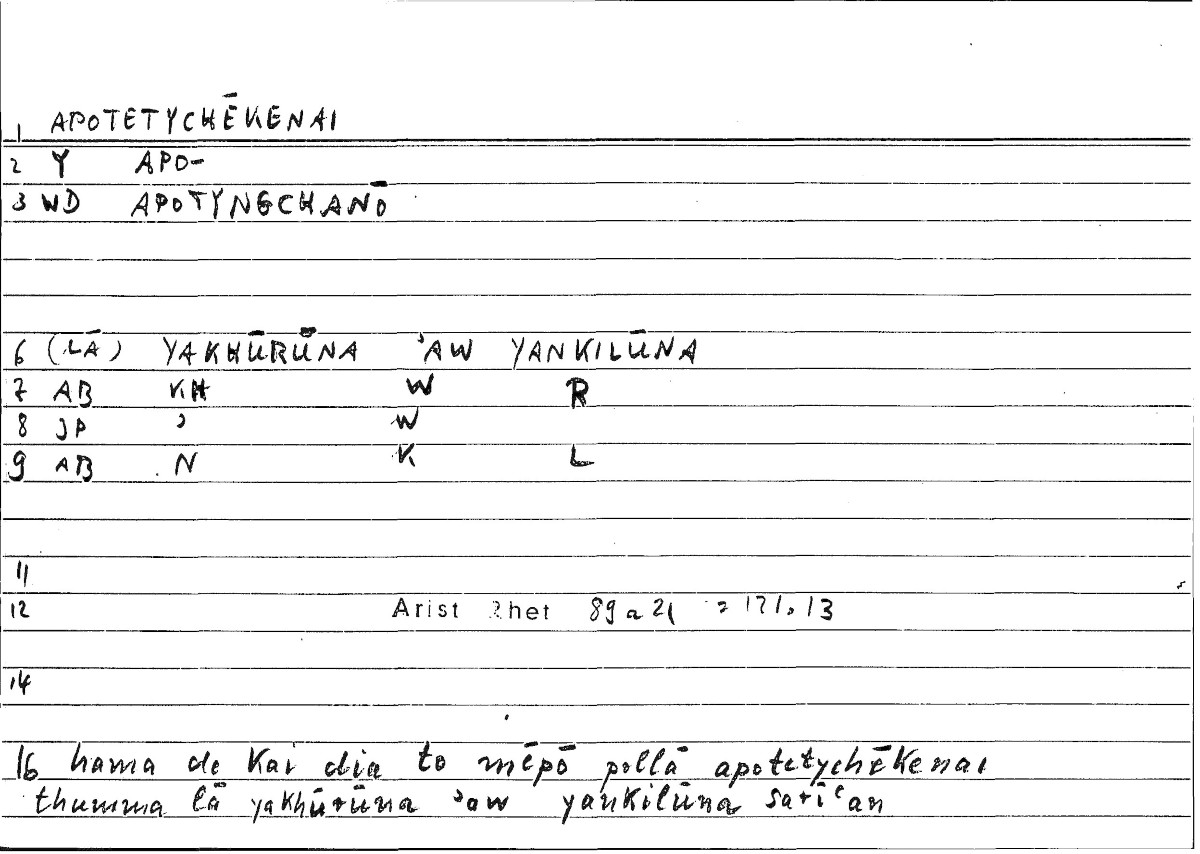 1 APOTETYCHĒKENAI
2 Y APO-
3 WD APOTYNGCHANŌ
6 (LĀ) YAKHŪRŪNA ʾAW YANKILŪNA
7 AB KH W R
8 JP ʾ W
9 AB N K L
11
12 Arist Rhet 89a21 = 121.13
14
16 hama de kai dia to mēpō polla apotetychēkenai
thumma lā yakhūrūna ʾaw yankilūna sarīʿan